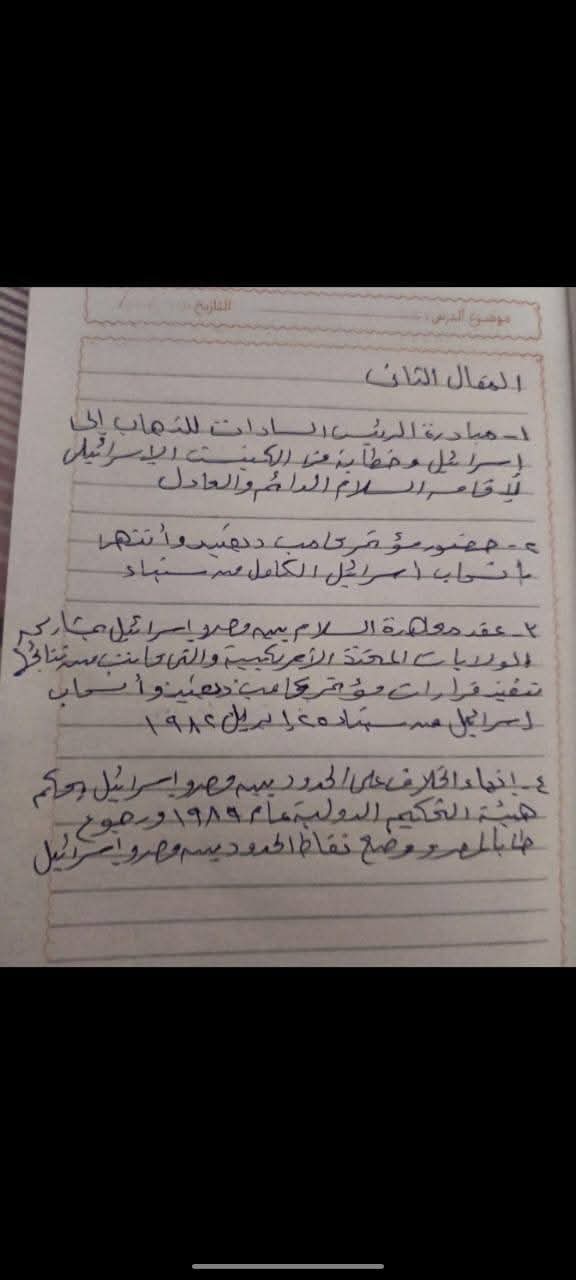 موضوع الدرس : التاريخ
المقال الثانى
١- مبادرة الرئيس السادات للذهاب إلى
إسرائيل وخطابه فى الكنيست الإسرائيلى
لإقامه السلام الدائم والعادل
٢- حضور مؤتمر كامب ديفيد وأنتهى
بأنسحاب اسرائيل الكامل من سيناء
٣- عقد معاهدة السلام بين مصر واسرائيل بمشاركه
الولايات المتحدة الأمريكيية والتى كانت من نتائجها
تنفيذ قرارات مؤتمر كامب ديفيد وأنسحاب
إسرائيل من سيناء ٢٥ إبريل ١٩٨٢
٤- إنهاء الخلاف على الحدود بين مصر واسرائيل بحكم
هيئة التحكيم الدولية عام ١٩٨٩ ورجوع
طابا لمصر ووضع نقاط الحدود بين مصر وإسرائيل